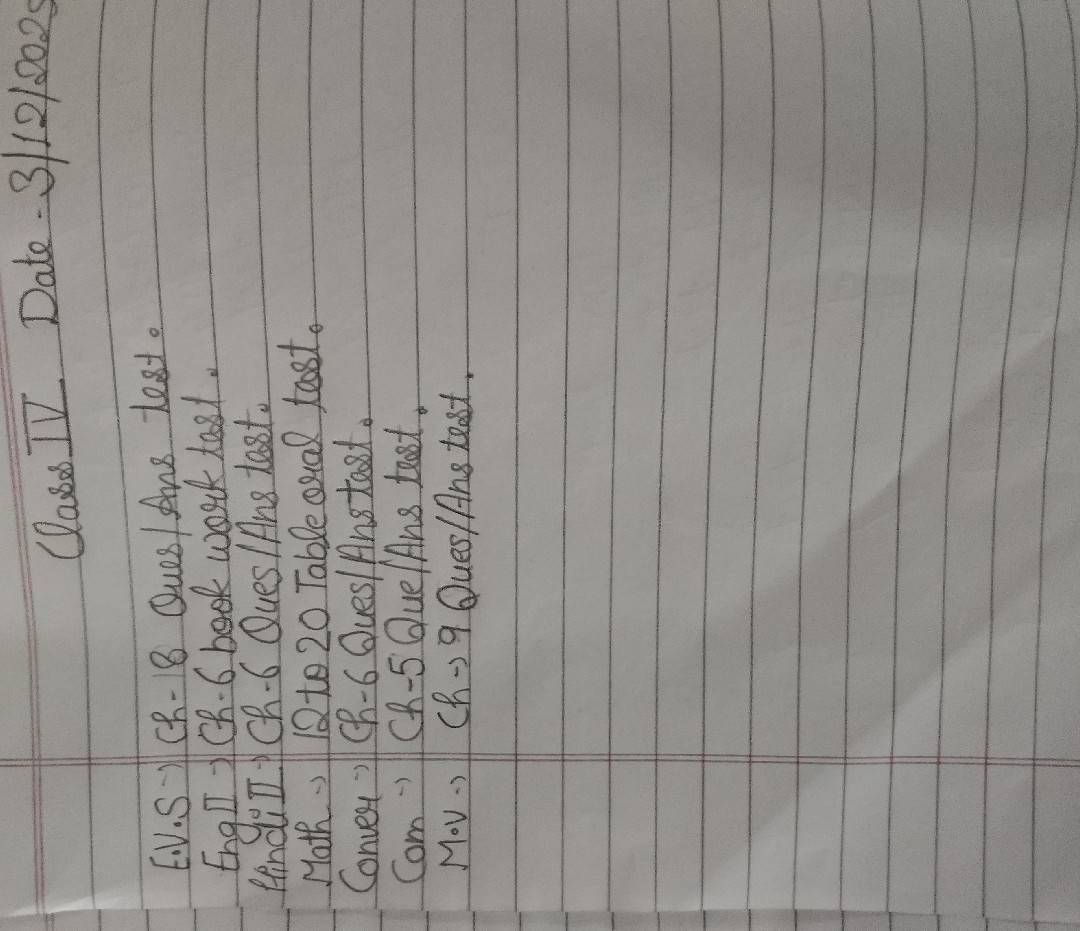 Class IV Date - 3/12/2025
E.V.S → Ch-18 Ques/Ans test.
Eng II → Ch-6 book work test.
Hindi II → Ch-6 Ques/Ans test.
Math → 12 to 20 Table oral test.
Conver → Ch-6 Ques/Ans test.
Com → Ch-5 Que/Ans test.
M.V → Ch → 9 Ques/Ans test.